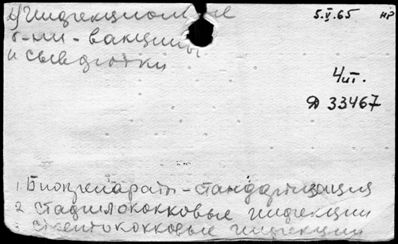 4) Инфекционные 5.V.65 НР
б-ни - вакцины
и сыворотки
4 шт.
Д 33467
1. Биопрепараты - стандартизация
2. Стафилококковые инфекции
3. Стрептококковые инфекции